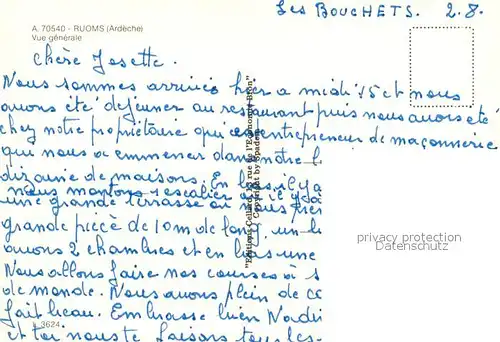 Les BOUCHETS. 2.8.
A. 70540 - RUOMS (Ardèche)
Vue générale
chère Josette.
Nous sommes arrivés hier a midi 15 et nous
avons été déjeuner au restaurant puis nous avons été
chez notre propriétaire qui est entrepreneur de maçonnerie
qui nous a emmener dans notre
dizaine de maisons. En bas, il y a
nous montons l'escalier où il y a
une grande terrasse où nous
grande pièce de 10m de long, un
avons 2 chambres et en bas une
Nous allons faire nos courses à
de monde. Nous avons plein de
fait beau. Embrasse bien
et toi nous te faisons tous les
"Editions Cellard, rue de l'Economie Bron"
Copyright by Spadem
privacy protection
Datenschutz
3624